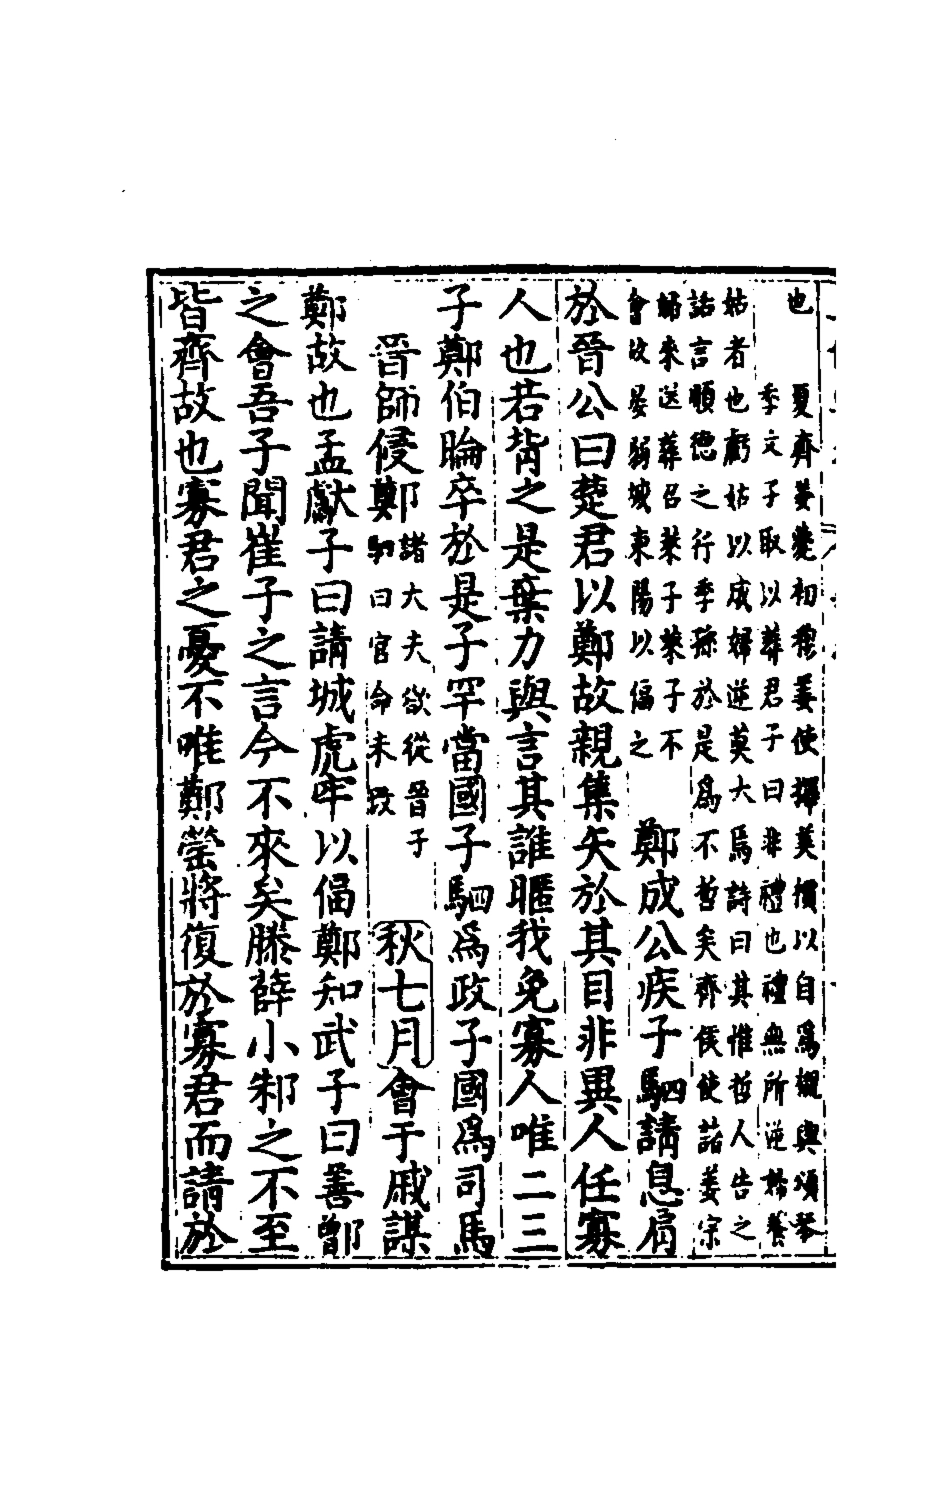 也　夏齊姜薨初穆姜使擇美檟以自爲櫬與頌琴
季文子取以葬君子曰非禮也禮無所逆婦養
姑者也虧姑以成婦逆莫大焉詩曰其惟哲人告之
話言順德之行季孫於是爲不哲矣齊侯使諸姜宗
婦來送葬召萊子萊子不
會故晏弱城東陽以偪之
鄭成公疾子駟請息肩
於晉公曰楚君以鄭故親集矢於其目非異人任寡
人也若背之是棄力與言其誰暱我免寡人唯二三
子鄭伯睔卒於是子罕當國子駟爲政子國爲司馬
晉師侵鄭
諸大夫欲從晉子
駟曰官命未改
秋七月會于戚謀
鄭故也孟獻子曰請城虎牢以偪鄭知武子曰善鄫
之會吾子聞崔子之言今不來矣滕薛小邾之不至
皆齊故也寡君之憂不唯鄭罃將復於寡君而請於